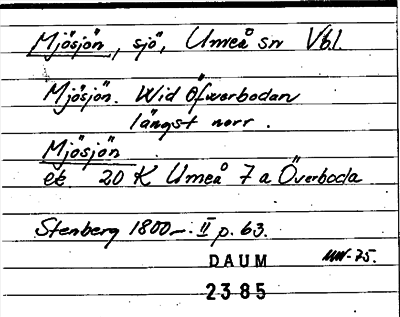 Mjösjön, sjö, Umeå sn Vbl.
Mjösjön. Wid Öfwerbodan
längst norr.
Mjösjön
ek. 20 K Umeå 7 a Överboda
Stenberg 1800-. II p. 63.
DAUM MW-75.
2385